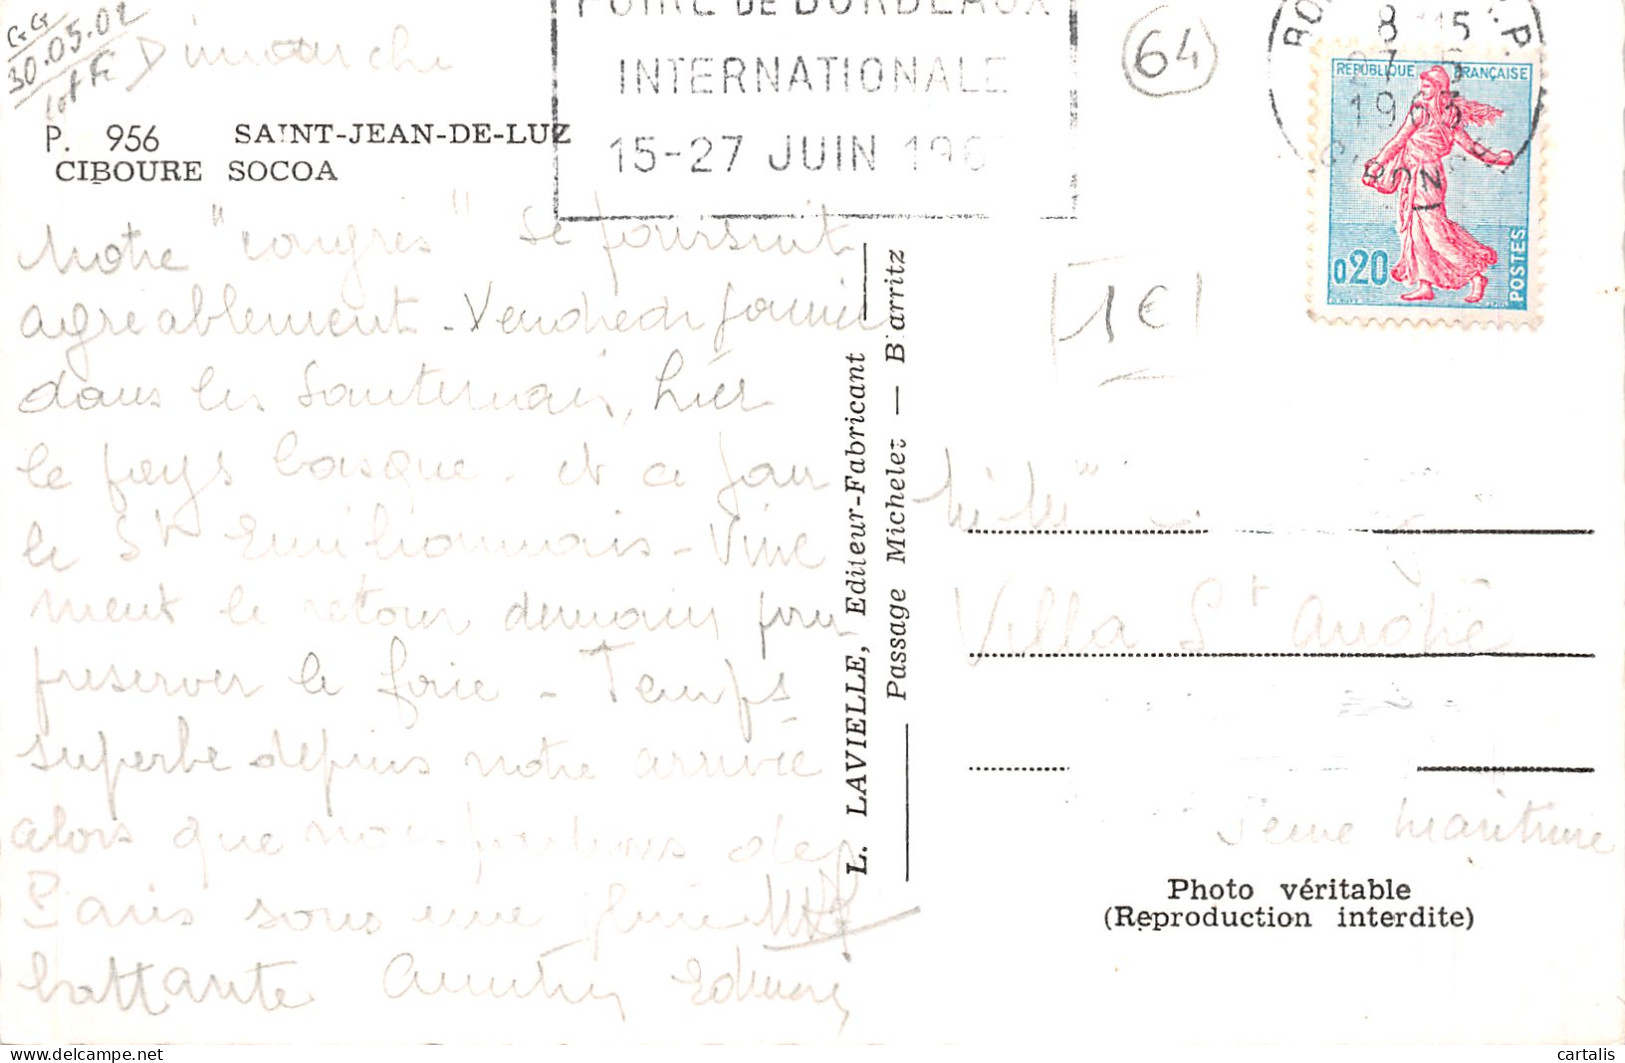 GG
30.05.02
lot Fc
Dimanche
P. 956 SAINT-JEAN-DE-LUZ
CIBOURE SOCOA
FOIRE DE BORDEAUX
INTERNATIONALE
15-27 JUIN 196
64
8 15
27 5
1963
GIRONDE
REPUBLIQUE FRANÇAISE
0,20
POSTES
1€
Notre "congrès" se poursuit
agréablement - Vendredi journée
dans les Sauternais, hier
le pays basque - et ce jour
le St Emilionnais - Vive
ment le retour demain pour
préserver le foie - Temps
superbe depuis notre arrivée
alors que nous partions de
Paris sous une pluie
battante Amitiés
L. LAVIELLE, Editeur-Fabricant
Passage Michelet — Biarritz
Villa St André
Seine Maritime
Photo véritable
(Reproduction interdite)
cartalis